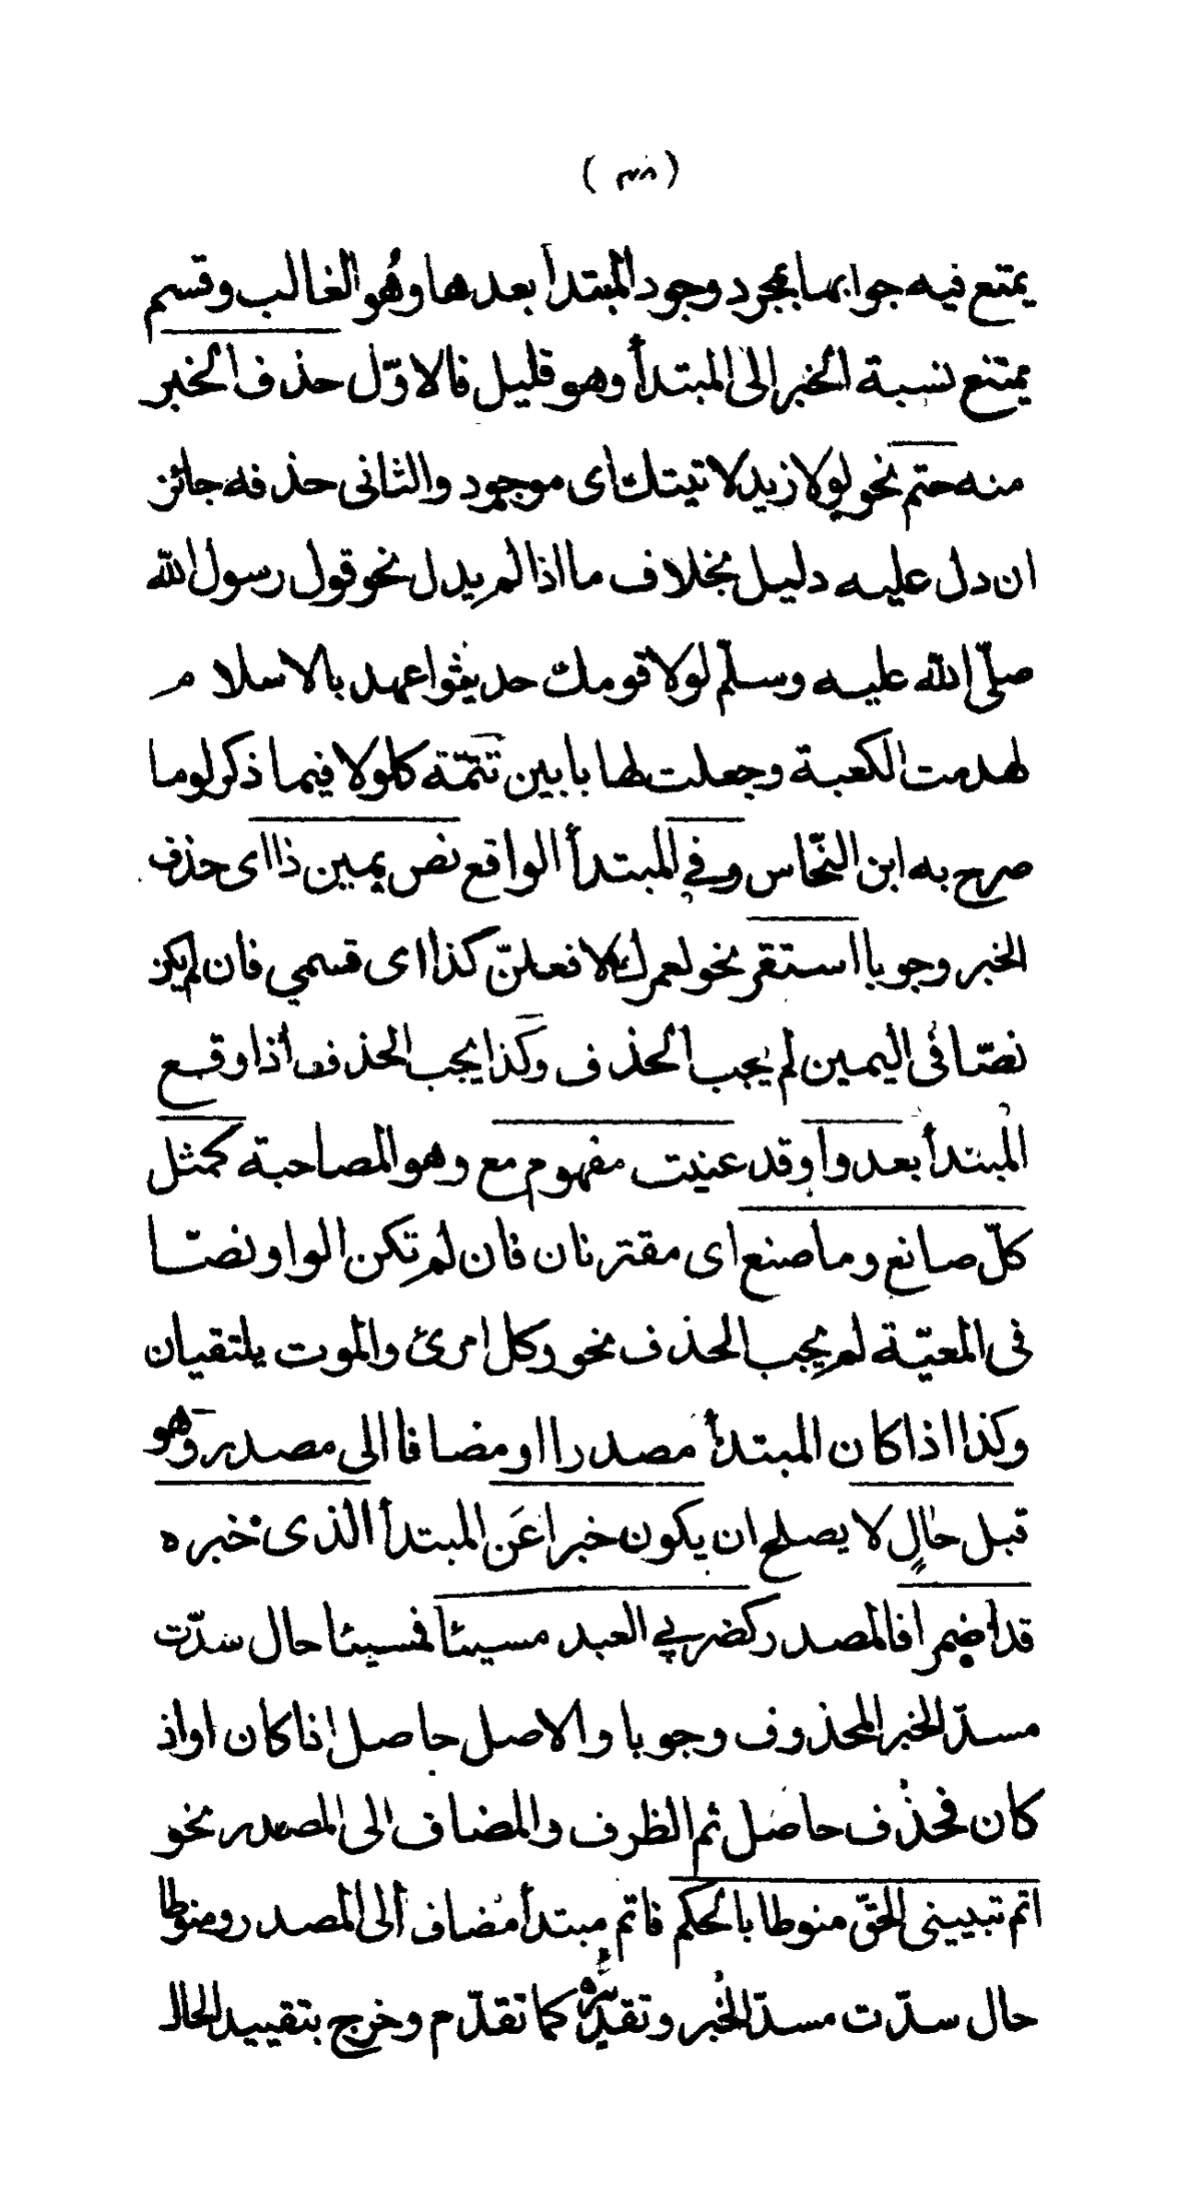 (٣٨)
يمتنع فيه جوابها بمجرد وجود المبتدأ بعدها وهُو الغالب وقسم
يمتنع نسبة الخبر الى المبتدأ وهو قليل فالاوّل حذف الخبر
منه حتم نحو لولا زيد لا تيتك اى موجود والثانى حذفه جائز
ان دل عليه دليل بخلاف ما اذا لم يدل نحو قول رسول الله
صلّى الله عليه وسلّم لولا قومك حديثوا عهد بالاسلام
لهدمت الكعبة وجعلت لها بابين تتمّة كلولا فيما ذكر لوما
صرح به ابن النحّاس وفي المبتدأ الواقع نص يمين ذا اى حذف
الخبر وجوبا استقر نحو لعمرك لافعلنّ كذا اى قسمي فان لم يكن
نصّا فى اليمين لم يجب الحذف وكذا يجب الحذف اذا وقع
المبتدأ بعد واو قد عنيت مفهوم مع وهو المصاحبة كمثل
كلّ صانع وما صنع اى مقترنان فان لم تكن الواو نصّا
فى المعيّة لم يجب الحذف نحو وكل امرئ والموت يلتقيان
وكذا اذا كان المبتدأ مصدرا او مضافا الى مصدر وهو
قبل حالٍ لا يصلح ان يكون خبرا عَن المبتدأ الذى خبره
قد اضمرا فالمصدر كضربي العبد مسيئا فمسيئا حال سدّت
مسدّ الخبر المحذوف وجوبا والاصل حاصل اذا كان او اذ
كان فحذف حاصل ثم الظرف والمضاف الى المصدر نحو
اتم تبيينى الحقّ منوطا بالحكم فاتم مبتدأ مضاف الى المصدر ومنوطا
حال سدّت مسدّ الخبر وتقديره كما تقدّم وخرج بتقييد الحال